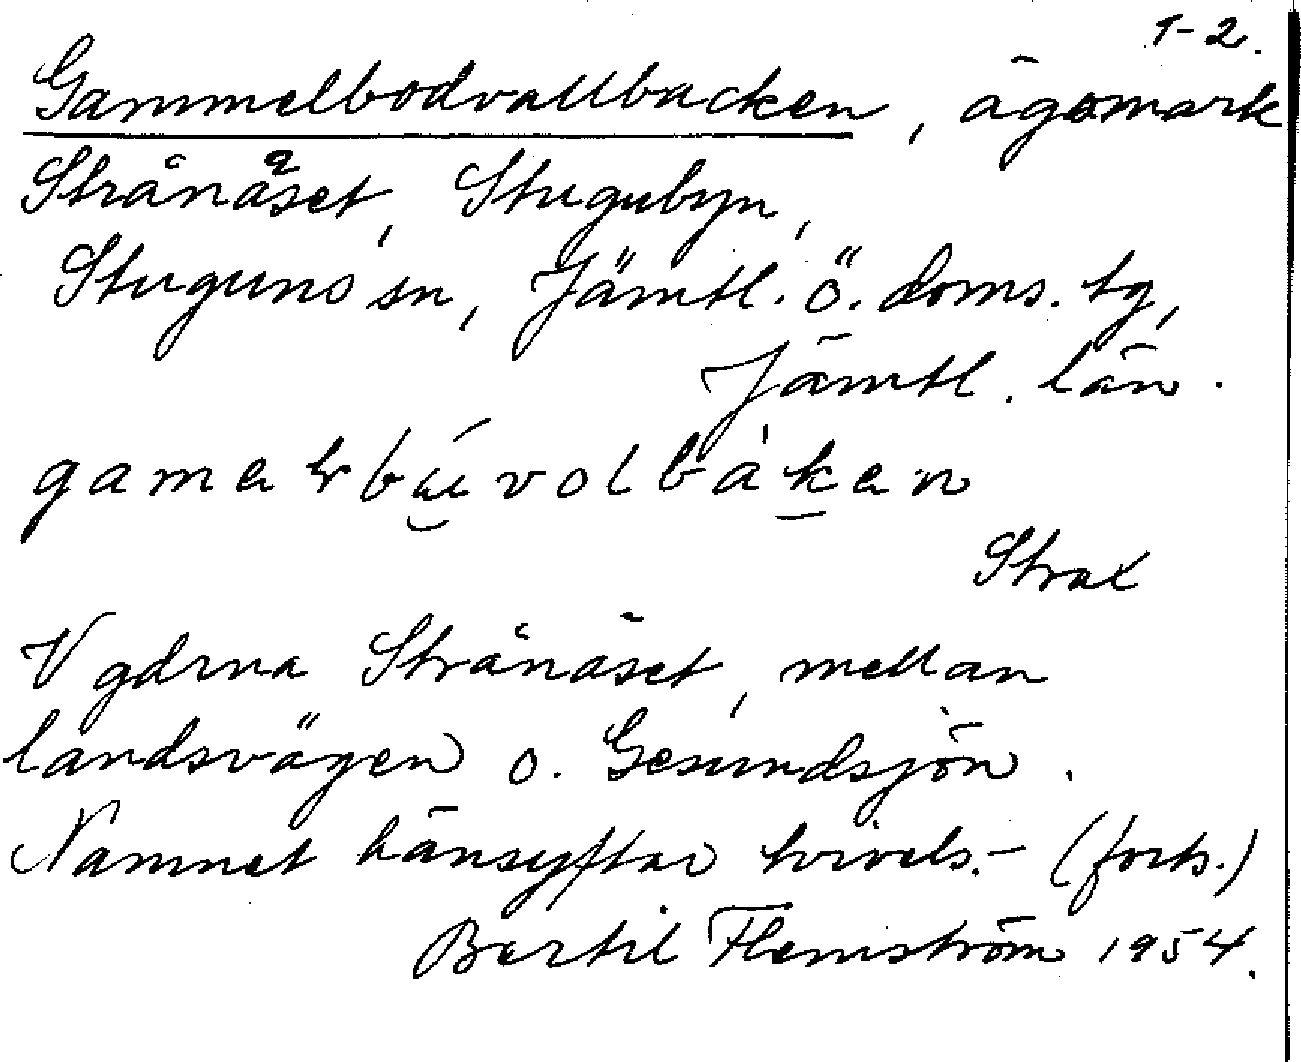 1-2.
Gammelbodvallbacken, ägomark
Strånäset, Stugubyn,
Stuguns sn, Jämtl. ö. doms. tg,
Jämtl. län.
Strax
V gdrna Strånäset, mellan
landsvägen o. Gesundsjön.
Namnet hänsyftar tvivels.- (forts.)
Bertil Flemström 1954.